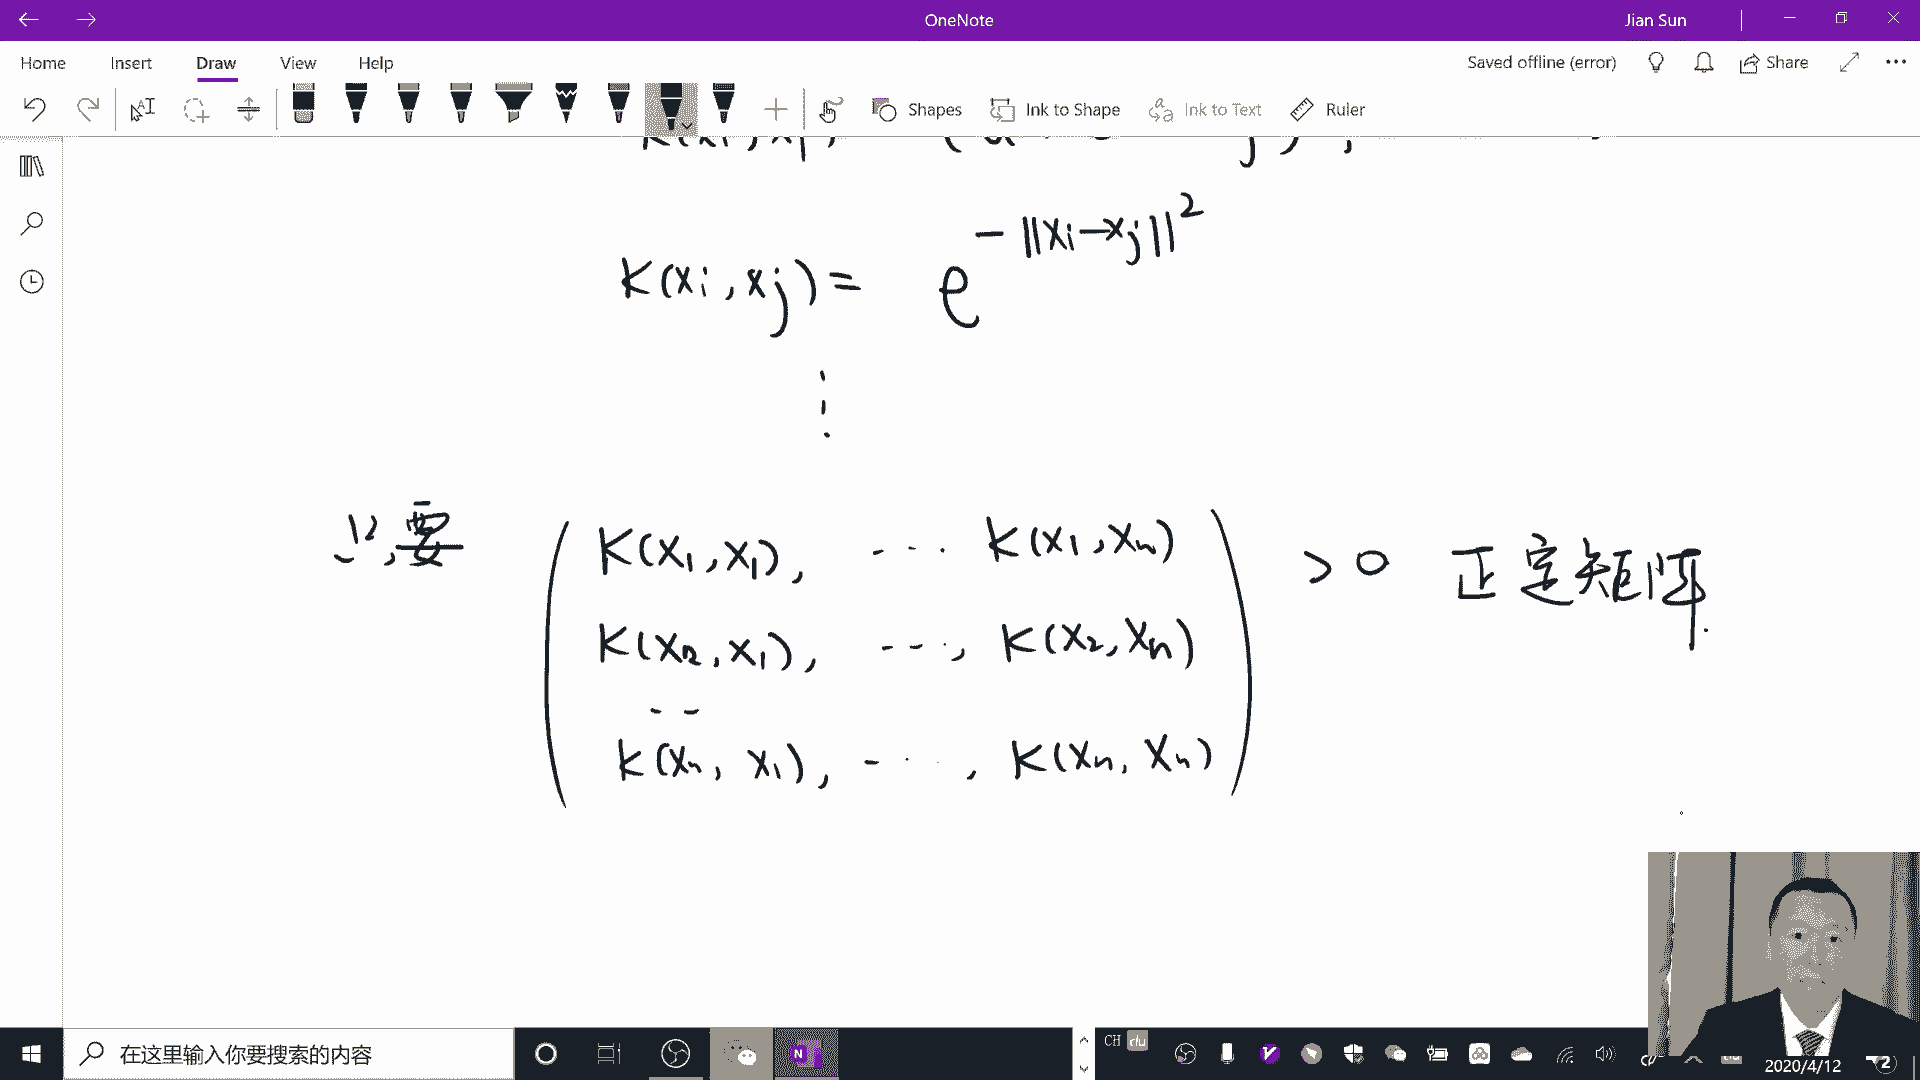 OneNote
Jian Sun
Home Insert Draw View Help
Saved offline (error) Share
Shapes Ink to Shape Ink to Text Ruler
K(xi,xj)= e^{-||xi-xj||^2}
⋮
必要
K(x1,x1), ... K(x1,xn)
K(x2,x1), ..., K(x2,xn)
K(xn,x1), ..., K(xn,xn)
>0 正定矩阵.
在这里输入你要搜索的内容
CH
2020/4/12
2